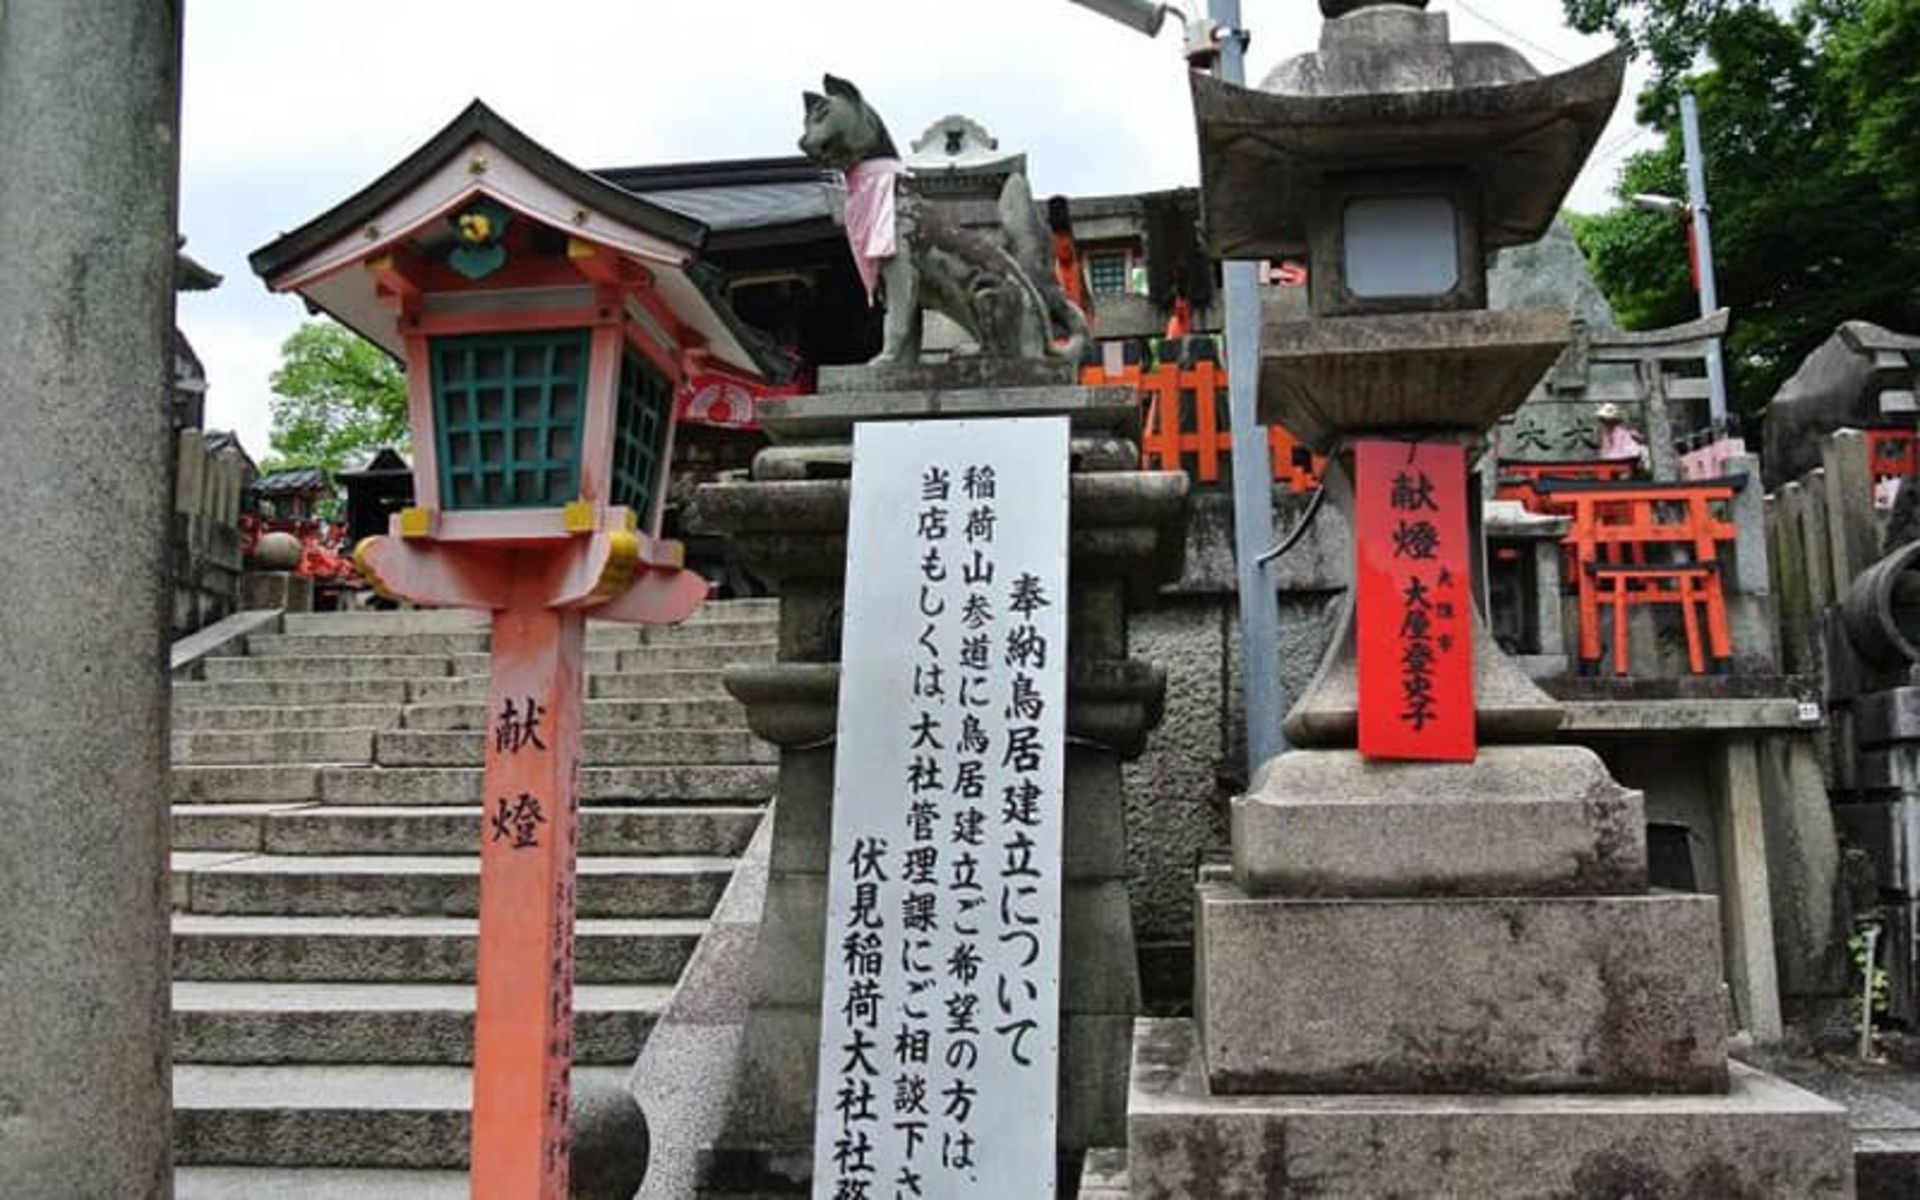 献燈
奉納鳥居建立について
稲荷山参道に鳥居建立ご希望の方は、
当店もしくは、大社管理課にご相談下さ
伏見稲荷大社社務
献燈
大屋登史子
六六